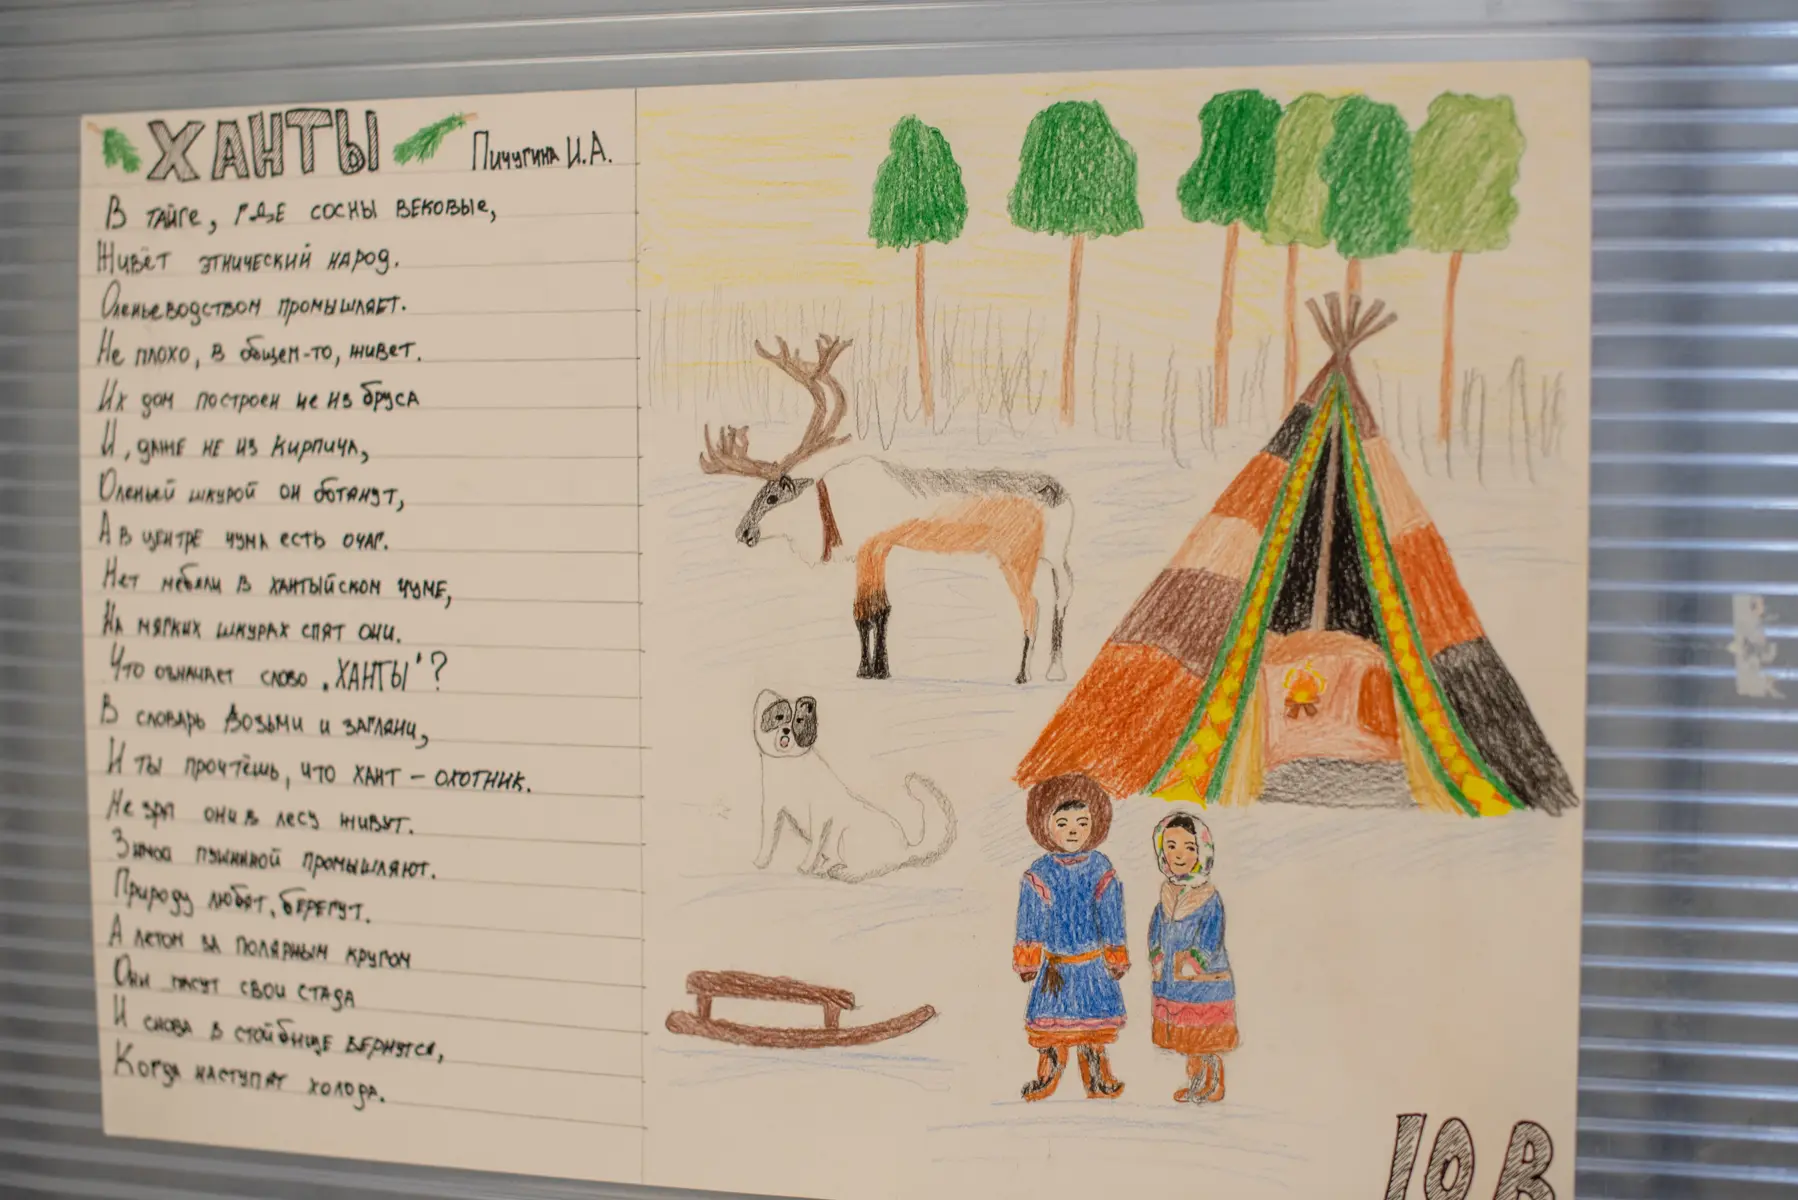 ХАНТЫ
Пичугина И.А.
В тайге, где сосны вековые,
Живёт этнический народ.
Оленьеводством промышляет.
Не плохо, в общем-то, живет.
Их дом построен не из бруса
И, даже не из кирпича,
Оленьей шкурой он обтянут,
А в центре чума есть очаг.
Нет мебели в хантыйском чуме,
На мягких шкурах спят они.
Что означает слово "ХАНТЫ"?
В словарь возьми и загляни,
И ты прочтёшь, что хант – охотник.
Не зря они в лесу живут.
Зимой пушниной промышляют.
Природу любят, берегут.
А летом за полярным кругом
Они пасут свои стада
И снова в стойбище вернутся,
Когда наступят холода.
10 В